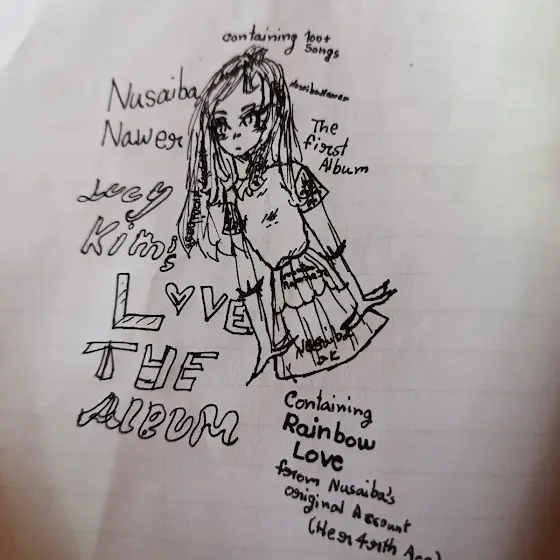 containing 100+
Songs
Nusaiba
Nawer
The
first
Album
Lucy
Kim's
L♥VE
THE
ALBUM
Nusaiba
Containing
Rainbow
Love
from Nusaiba's
original Account
(Her 4rith Acc)